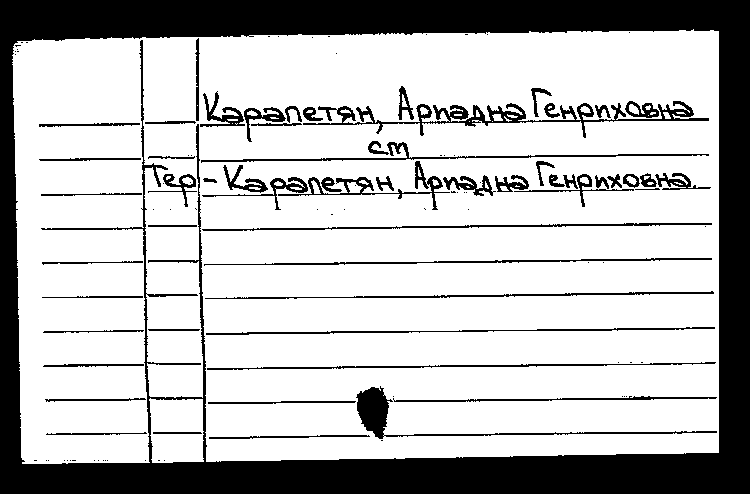 Карапетян, Ариадна Генриховна
см
Тер - Карапетян, Ариадна Генриховна.